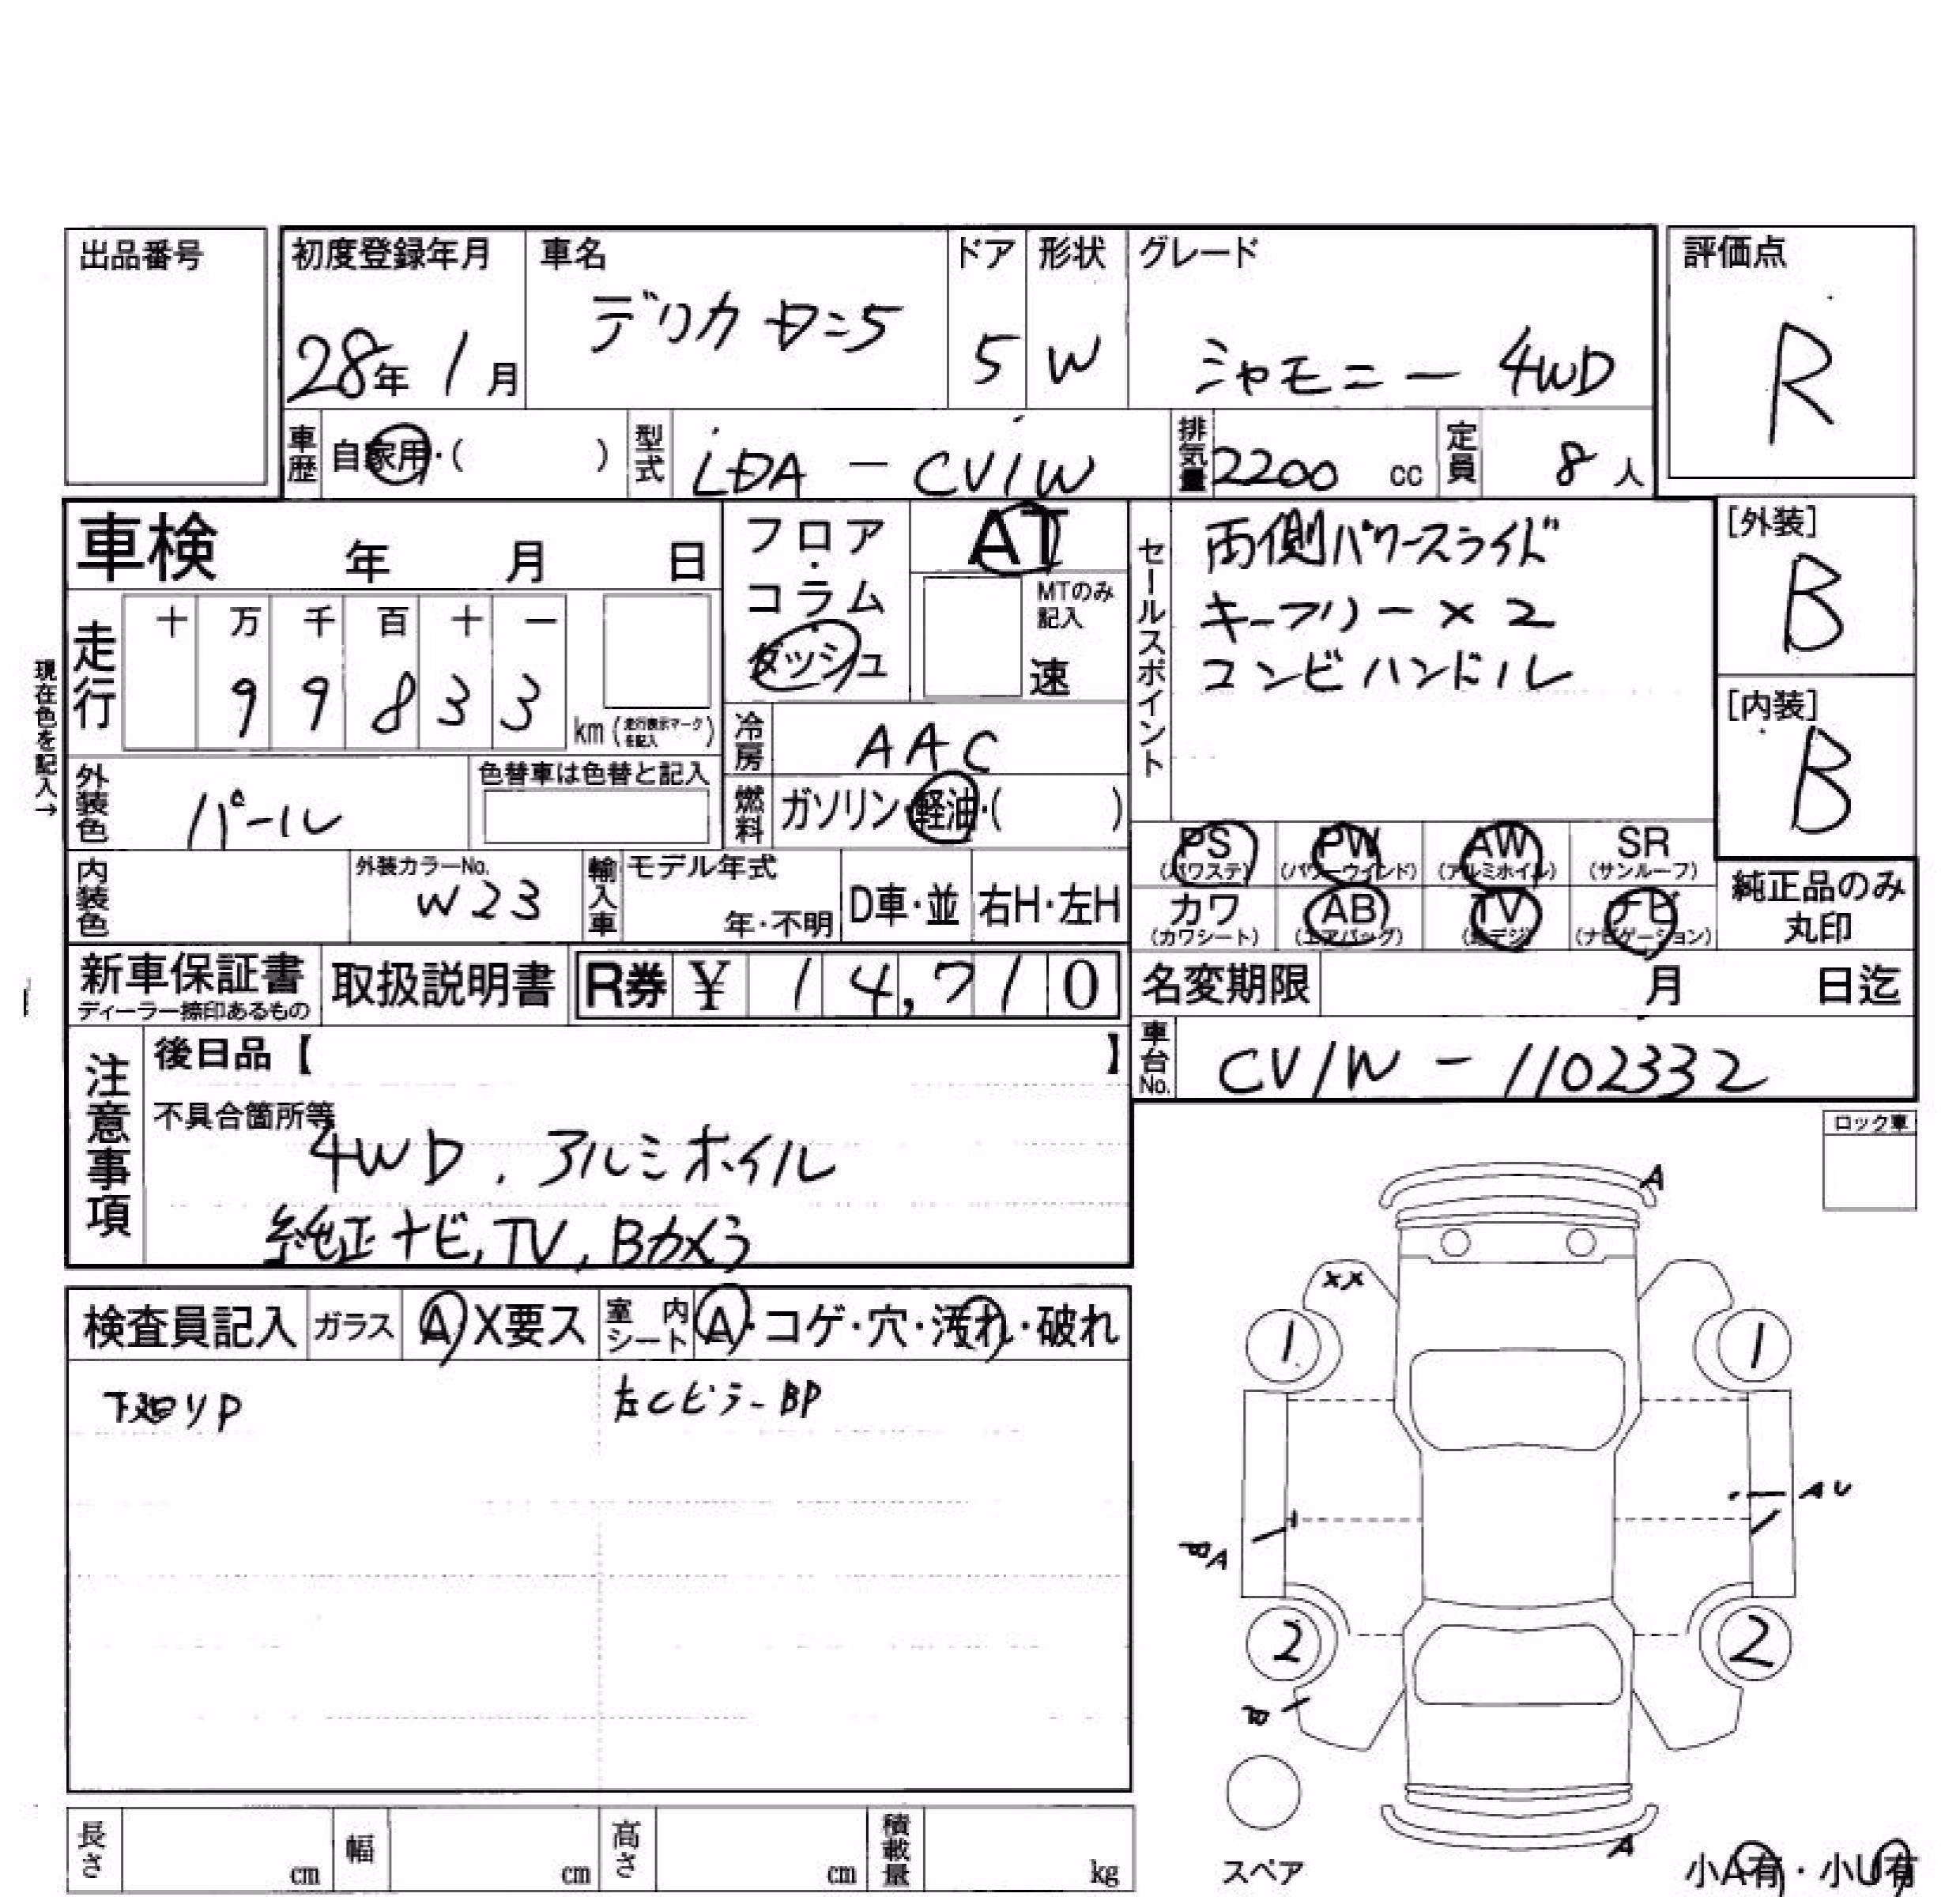 出品番号
初度登録年月
28年 1月
車名
デリカ D=5
ドア
5
形状
W
グレード
シャモニー 4WD
評価点
R
車歴 自家用・( )
型式 LDA - CV1W
排気量 2200 cc
定員 8人
車検 年 月 日
フロア・コラム・ダッシュ
AT
MTのみ記入
速
セールスポイント
両側パワースライド
キーフリー×2
コンビハンドル
[外装]
B
[内装]
B
現在色を記入→
走行
十 万 千 百 十 一
9 9 8 3 3
km (走行表示マークを記入)
冷房 AAC
燃料 ガソリン・軽油・( )
外装色 パール
色替車は色替と記入
内装色
外装カラーNo.
W23
輸入車
モデル年式
年・不明
D車・並
右H・左H
PS (パワステ)
PW (パワーウインド)
AW (アルミホイル)
SR (サンルーフ)
カワ (カワシート)
AB (エアバッグ)
TV (地デジ)
ナビ (ナビゲーション)
純正品のみ
丸印
新車保証書
ディーラー捺印あるもの
取扱説明書
R券 ¥ 14,710
名変期限 月 日迄
車台No. CV1W - 1102332
注意事項
後日品【 】
不具合箇所等
4WD、アルミホイル
純正ナビ, TV, Bカメラ
ロック車
検査員記入 ガラス A X要ス
室内シート A・コゲ・穴・汚れ・破れ
下廻りP
左Cピラー BP
A
XX
1 1
AU
A
2 2
A
スペア
小A有・小U有
長さ cm
幅 cm
高さ cm
積載量 kg